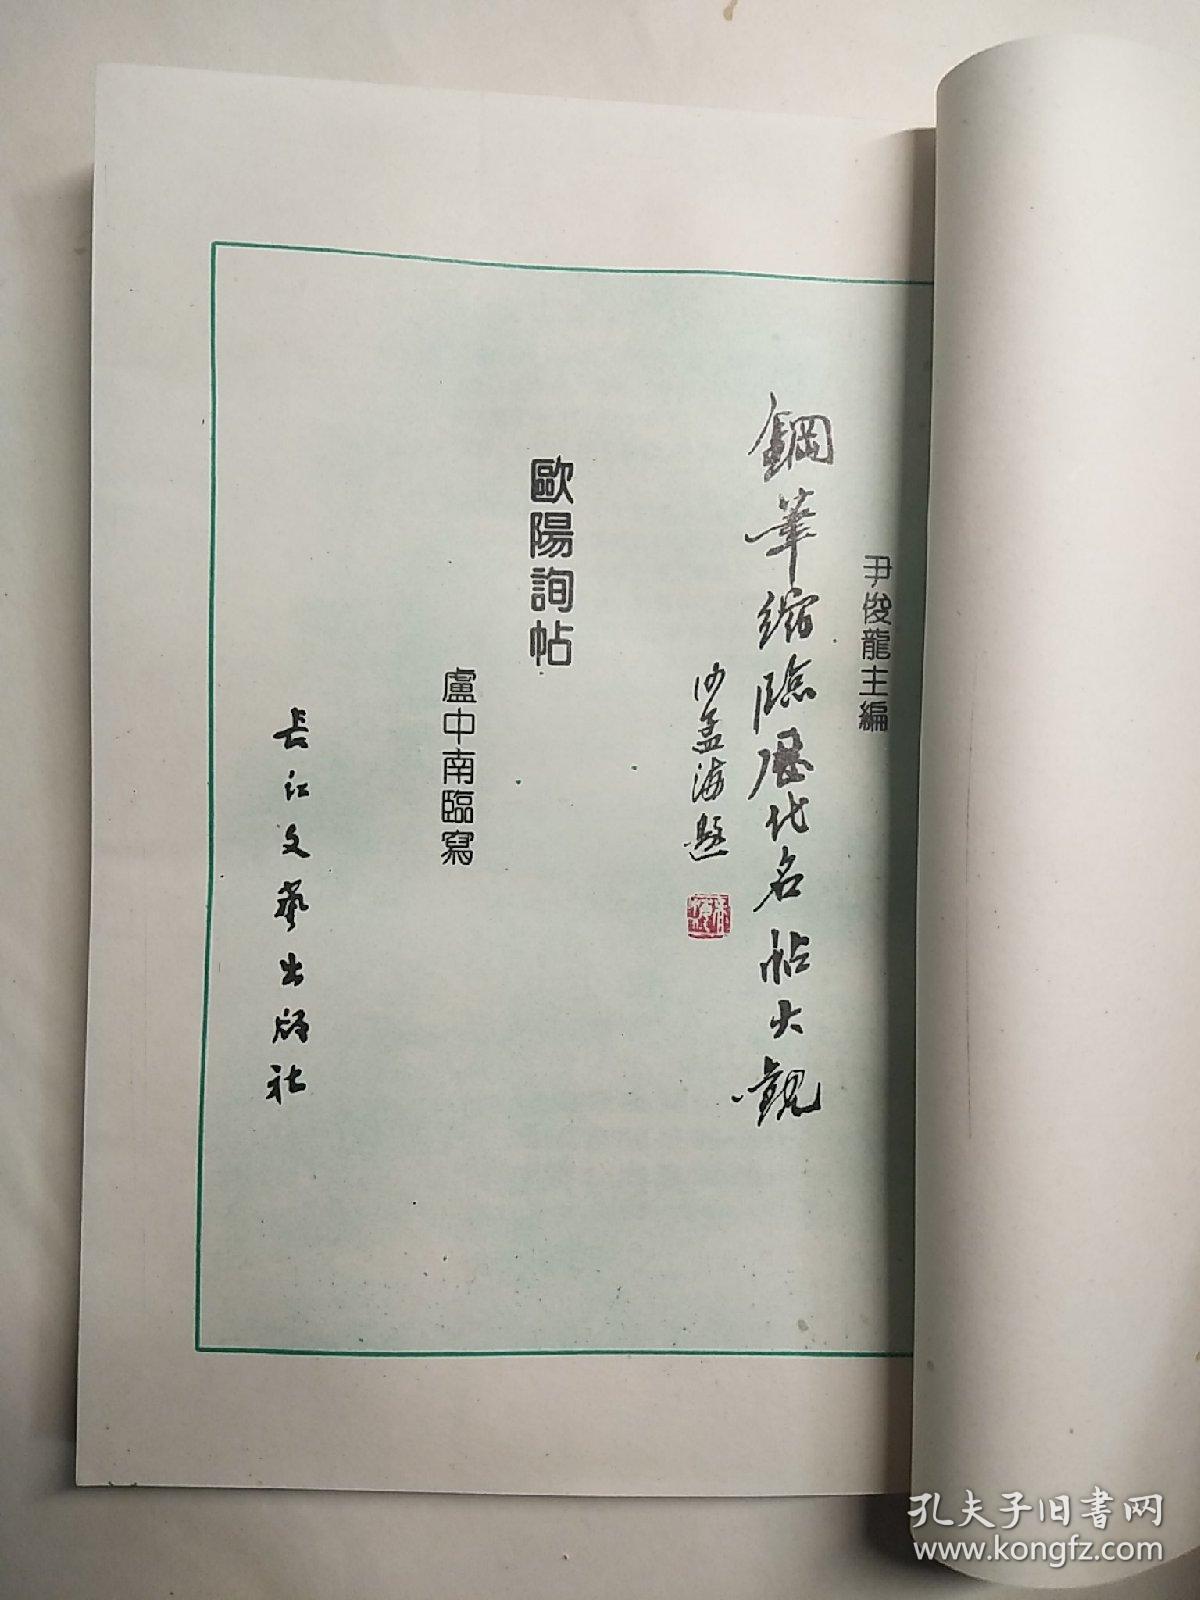 尹俊龍主編
鋼筆缩臨歷代名帖大觀
沙孟海題
歐陽詢帖
盧中南臨寫
長江文藝出版社
孔夫子旧书网
www.kongfz.com